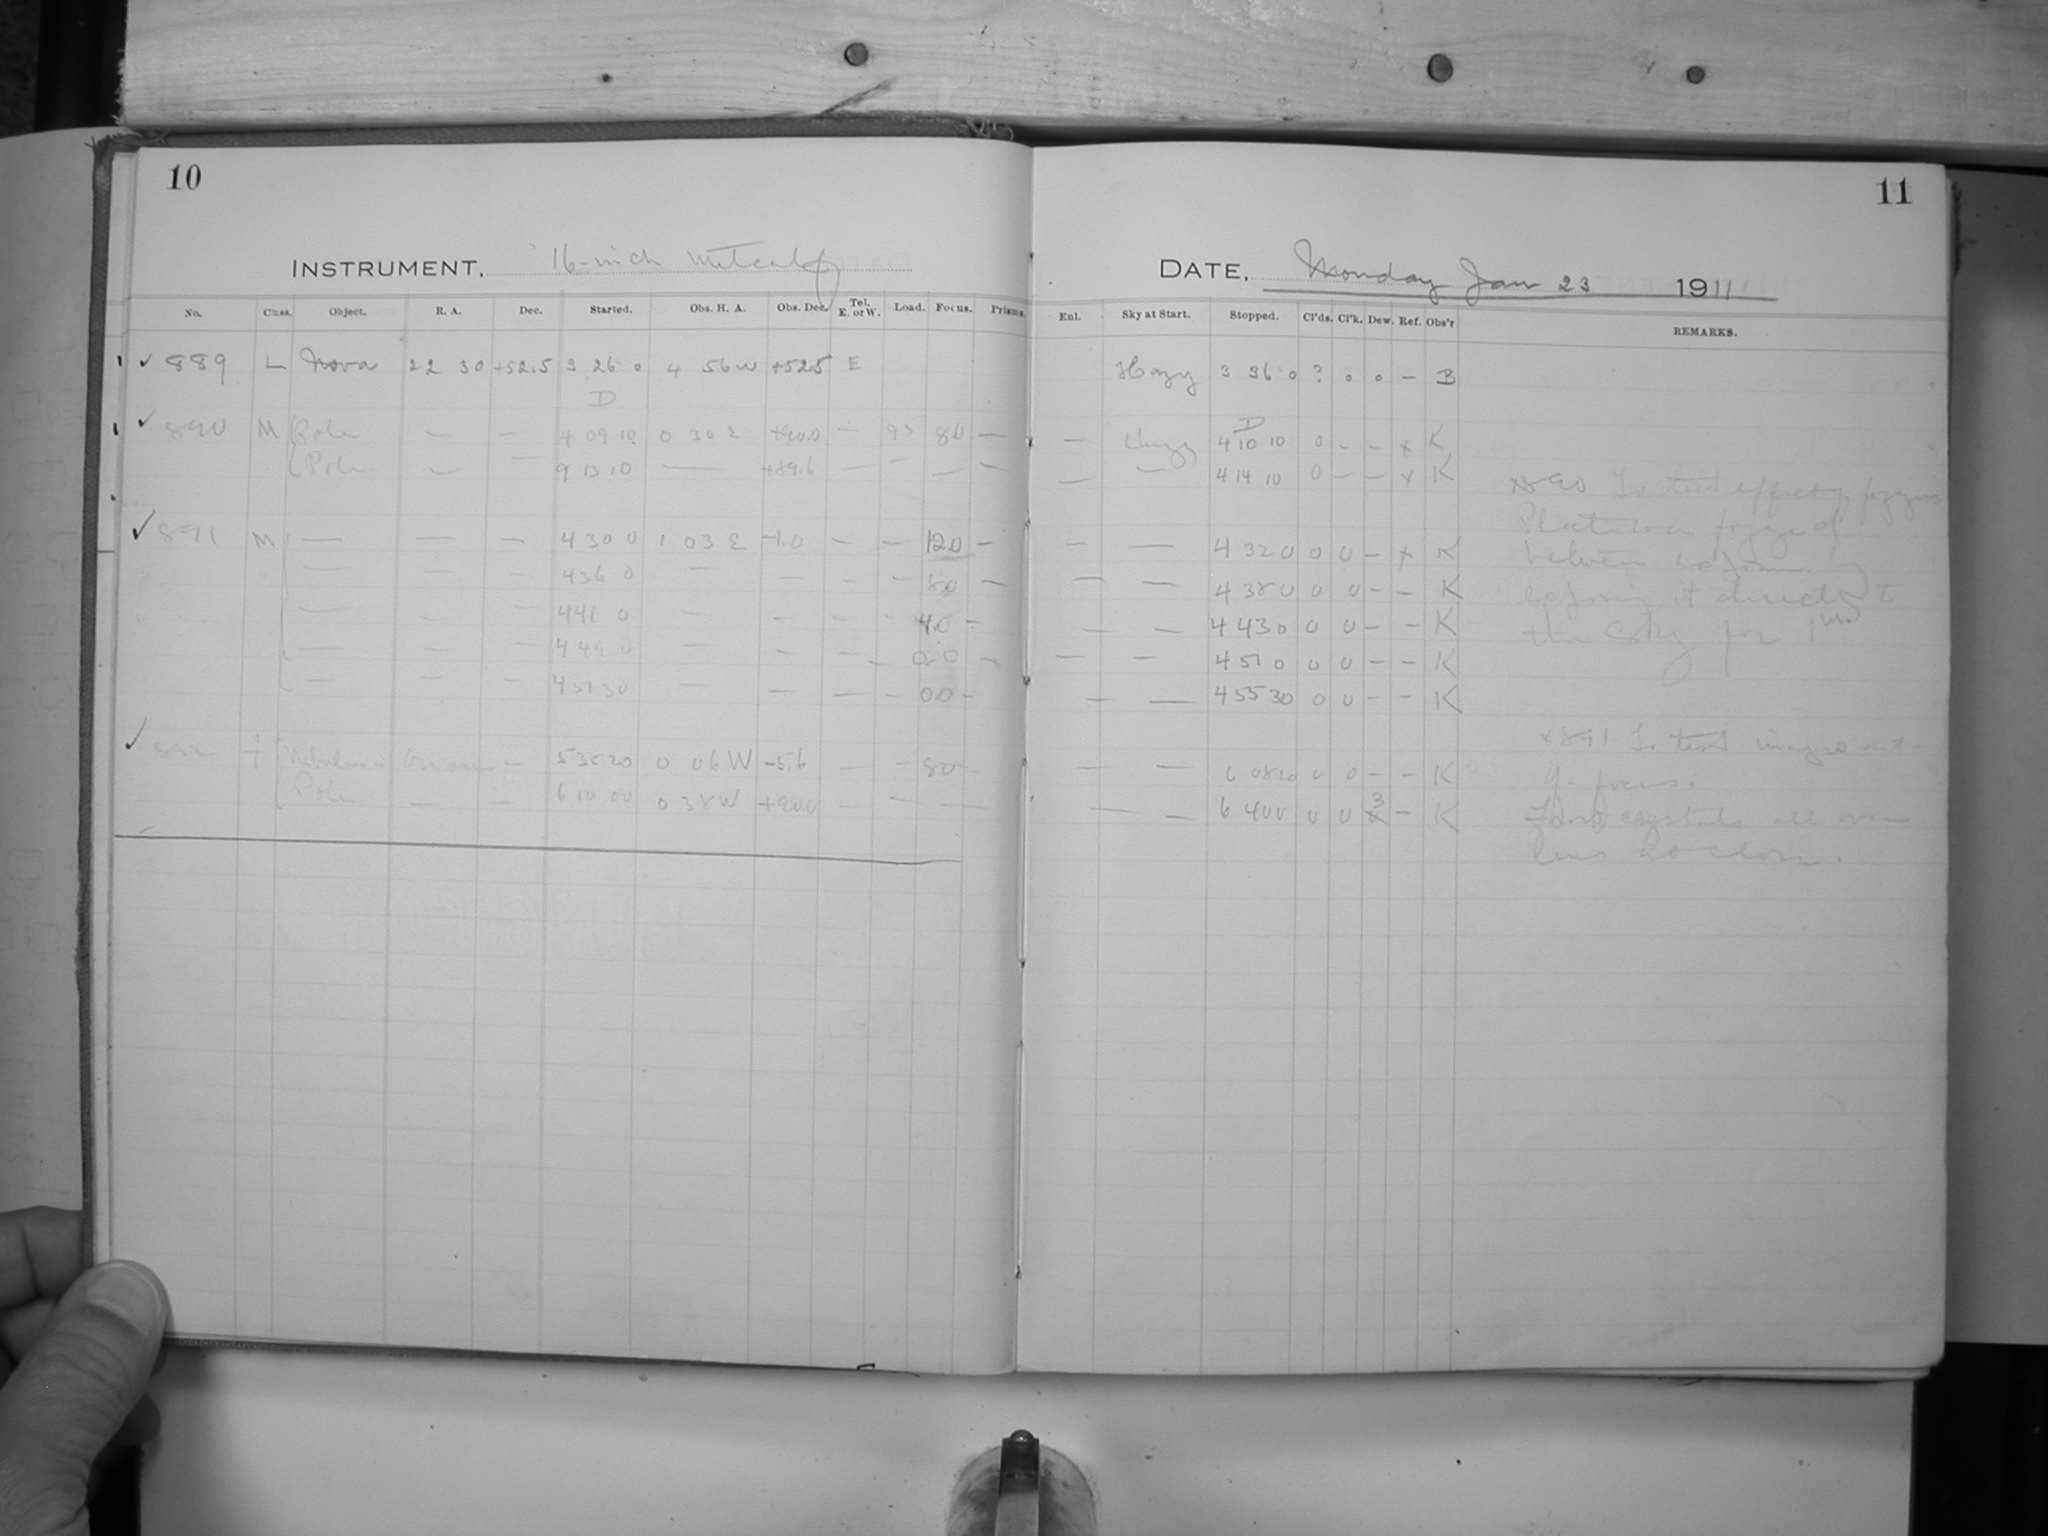 10
11
INSTRUMENT. 16-inch Metcalf
DATE. Monday Jan 23 1911
No. Class. Object. R. A. Dec. Started. Obs. H. A. Obs. Dec. Tel. E. or W. Load. Focus. Prisms. Enl. Sky at Start. Stopped. Cl'ds. Cl'k. Dew. Ref. Obs'r REMARKS.
✓ 889 L Nova 22 30 +52.5 3 26 0 4 56 W +52.5 E Hazy 3 36 0 ? 0 0 — B
D D
✓ 890 M Pole — — 4 09 10 0 30 E +90.0 — 80 — — Hazy 4 10 10 0 - - x K
Pole — — 9 13 10 — +89.6 — — — — — — 4 14 10 0 — — x K
x890 To test effect of fogging
Plate was fogged
✓ 891 M — — — 4 30 0 1 03 E -1.0 — — 120 — — — 4 32 0 0 0 — x K
between
— — — 4 36 0 — — - 80 — — — 4 38 0 0 0 - - K
it directly to
— — — 4 41 0 — - - - 40 - — — 4 43 0 0 0 - - K
the Sky for 1m
— — — 4 49 0 — - - - 00 - — — 4 51 0 0 0 - - K
— — — 4 51 30 — — — - 00 - — — 4 55 30 0 0 - - K
x891 To test images out
✓ 892 Nebula in Orion — 5 38 20 0 06 W -5.6 — — 80 — — — 6 08 20 0 0 - - K
of focus.
Pole — — 6 10 00 0 38 W +90.0 — - — — — — 6 40 0 0 0 3 x - K
Frost crystals all over
lens at close.